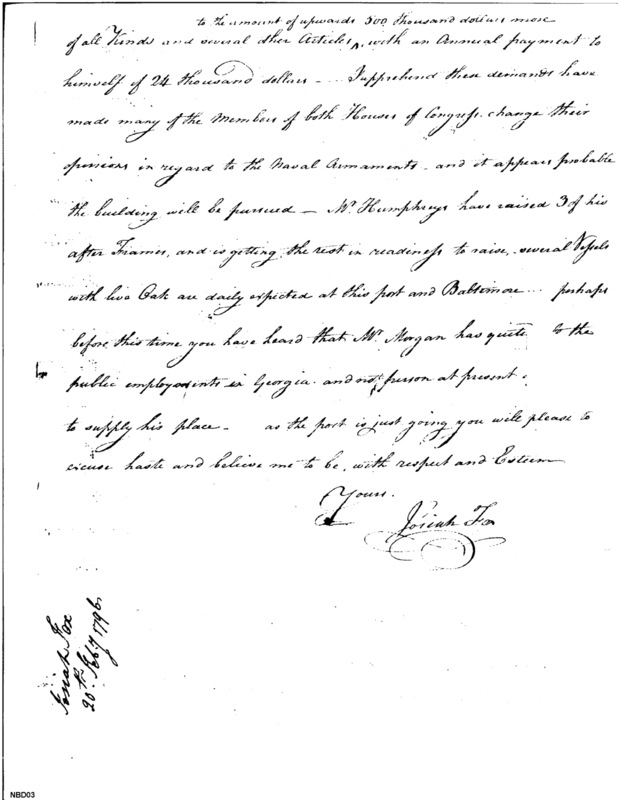 to the amount of upwards 500 thousand dollars more
of all Kinds and several other Articles ^, with an Annual payment to
himself of 24 thousand dollars - ... I apprehend these demands have
made many of the Members of both Houses of Congress, change their
opinions in regard to the Naval Armaments - and it appears probable
the building will be pursued - Mr. Humphreys have raised 3 of his
after Frames, and is getting the rest in readiness to raise, several Vessels
with live Oak are daily expected at this port and Baltimore ... perhaps
before this time you have heard that Mr. Morgan has quite to the
public employments in Georgia. and not person at present.
to supply his place - as the post is just going you will please to
excuse haste and believe me to be, with respect and Esteem
Yours.
Josiah Fox
Josiah Fox
20th Feby 1796
NBD03